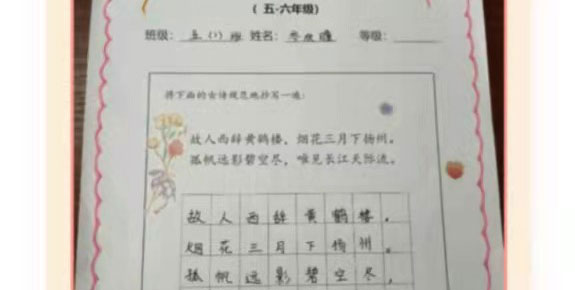 （五·六年级）
班级：五（1）班 姓名： 等级：
将下面的古诗规范地抄写一遍：
故人西辞黄鹤楼，烟花三月下扬州。
孤帆远影碧空尽，唯见长江天际流。
故人西辞黄鹤楼，
烟花三月下扬州。
孤帆远影碧空尽，